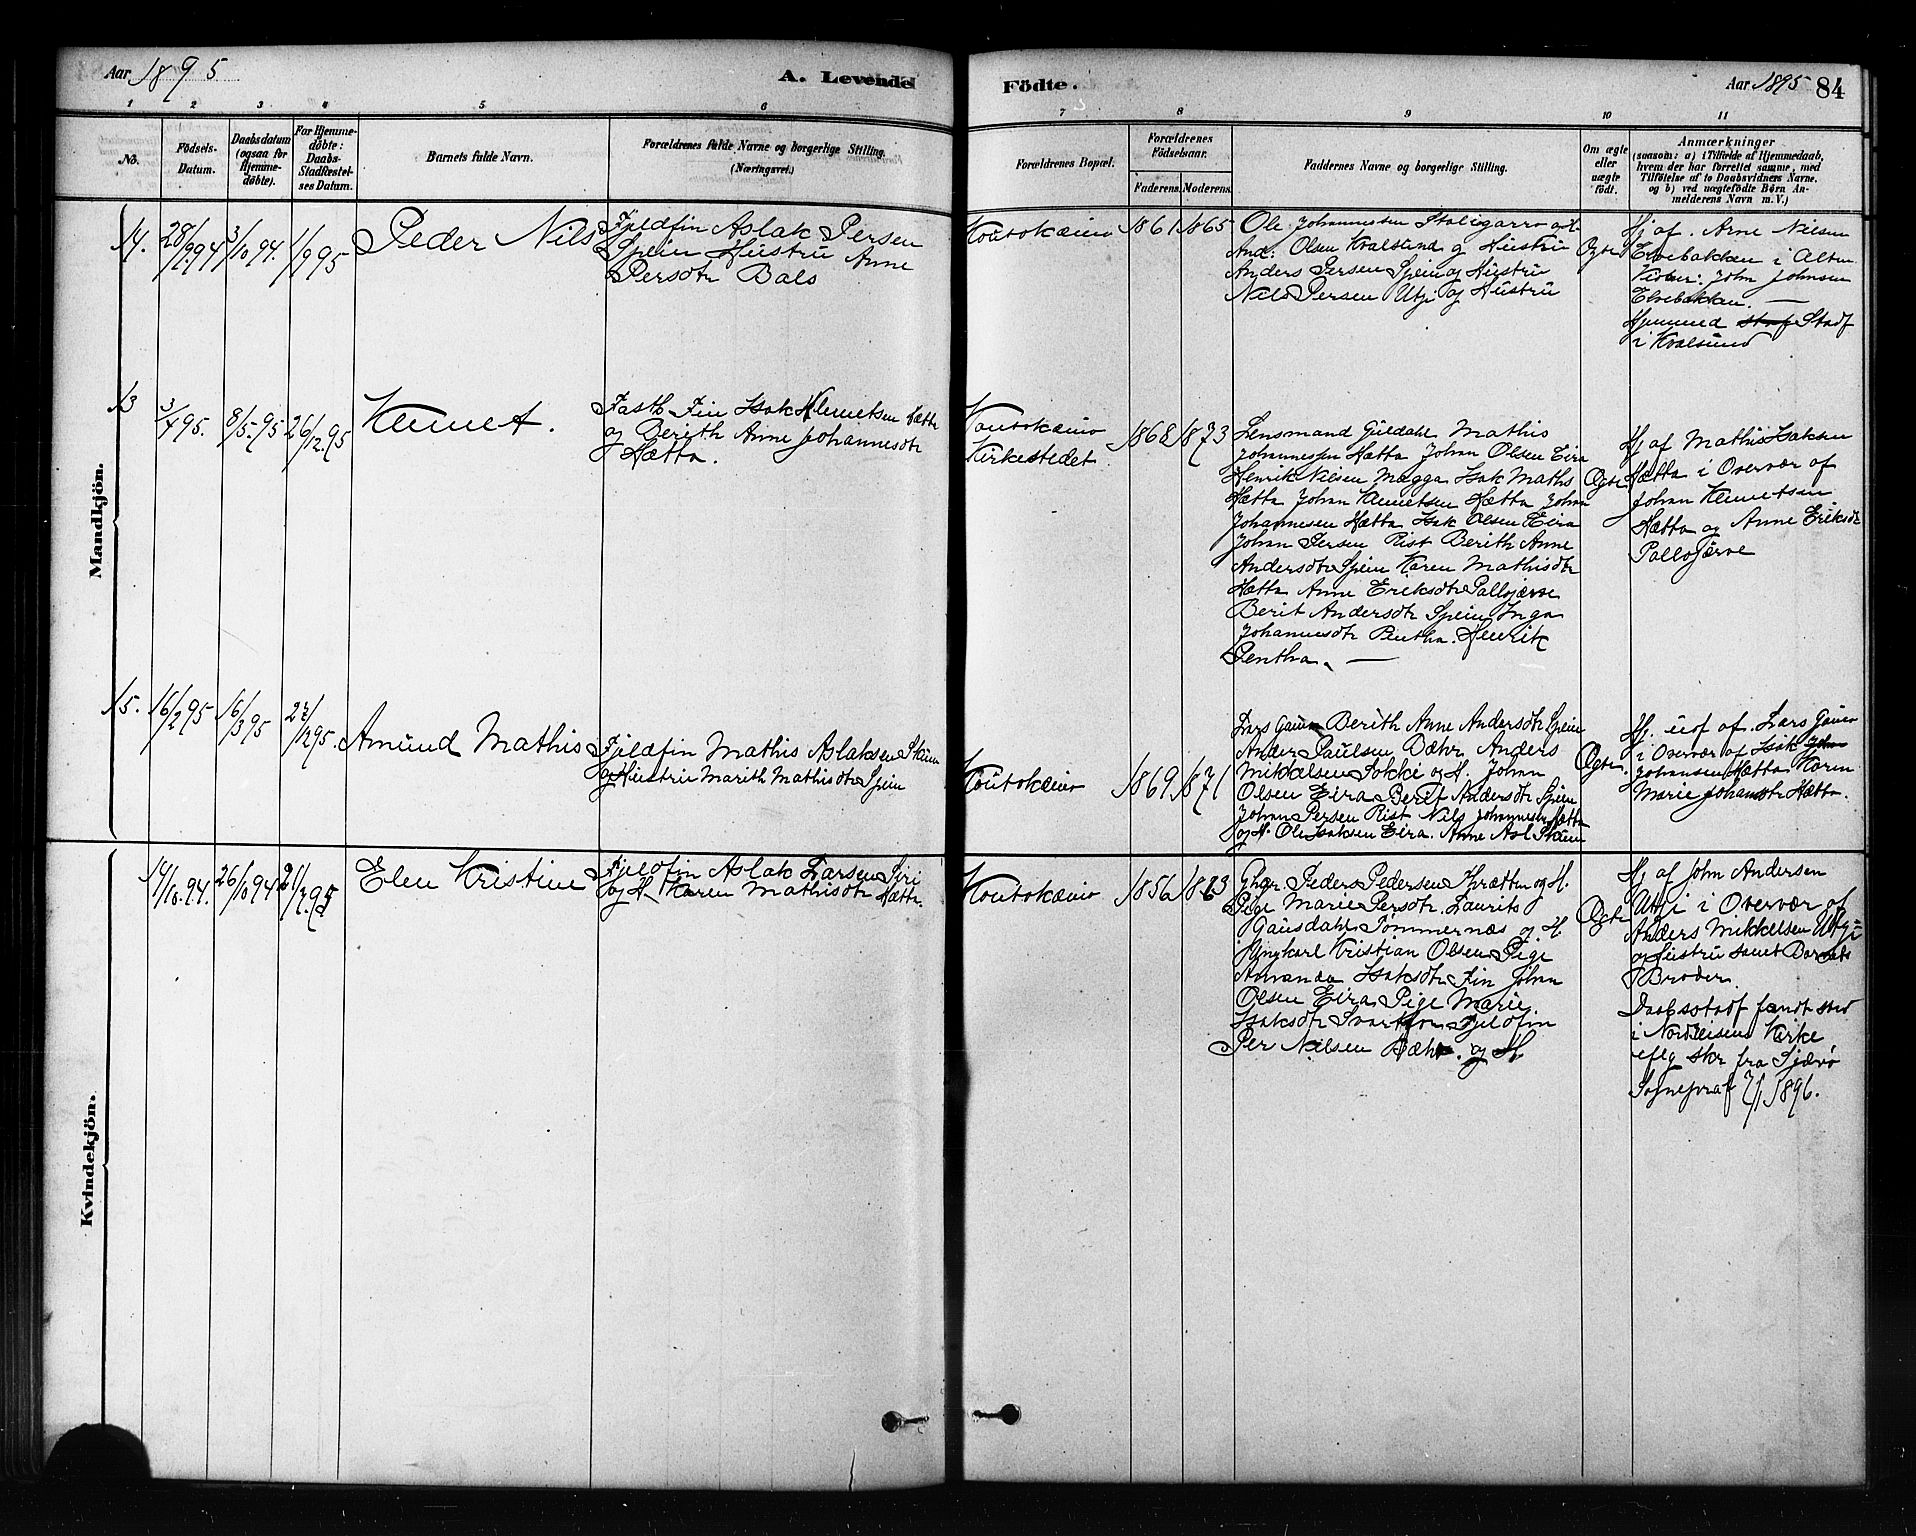 Aar 1895
A. Levendef
Födte.
Aar 1895 84
1 2 3 4 5 6 7 8 9 10 11
No.
Födsels-
Datum.
Daabsdatum
(ogsaa for
Hjemme-
döbte).
For Hjemme-
döbte:
Daabs-
Stadfæstel-
ses Datum.
Barnets fulde Navn.
Forældrenes fulde Navne og borgerlige Stilling.
(Næringsvei.)
Forældrenes Bopæl.
Forældrenes
Födselsaar.
Faderens. Moderens.
Faddernes Navne og borgerlige Stilling.
Om ægte
eller
uægte
födt.
Anmærkninger
(saasom: a) i Tilfælde af Hjemmedaab,
hvem der har forrettet samme, med
Tilföielse af to Daabsvidners Navne.
og b) ved uægtefödte Börn An-
melderens Navn m. V.)
Mandkjön.
14.
28/9 94
3/10 94.
1/9 95
Peder Nils
Fjeldfin Aslak Persen
Spein Hustru Anne
Persdtr Bals
Koutokæino
1861
1865
Ole Johannessen Staligarro og H.
And: Olsen Kvalsund og Hustru
Anders Persen Spein og Hustru
Nils Persen Utsi og Hustru
Ægte
Hj af. Arne Nilsen
Elvebakken i Alten
Vidner: John Johnsen
Elvebakken. —
Hjemmed Stadf
i Kvalsund
13
3/4 95.
8/5 95
26/12 95
Klemet.
Fastb. Fin Isak Klemetsen Hætta
og Berith Anne Johannesdtr
Hætta.
Koutokæino
Kirkestedet
1868
1873
Lensmand Guldahl Mathis
Johannessen Hætta Johan Olsen Eira
Henrik Nilsen Magga Isak Maths
Hætta Johan Klemetsen Hætta Johan
Johannesen Hætta Isak Olsen Eira
Johan Persen Rist Berith Anne
Andersdtr Spein Karen Mathisdtr
Hætta Anne Eriksdtr Pallojærve
Berit Andersdtr Spein Inga
Johannesdtr Bentha. Henrik
Pentha. —
Ægte
Hj af Mathis Isaksen
Hætta i Overvær af
Johan Klemetsen
Hætta og Anne Eriksdtr
Pallojærve
15.
16/2 95
16/3 95
27/12 95.
Amund Mathis
Fjeldfin Mathis Aslaksen Skum
og Hustru Marith Mathisdtr Spein
Koutokæino
1869
1871
Lars Gaino Berith Anne Andersdtr Spein
Ander Paulsen Bæhr Anders
Mikkelsen Sokki og H. Johan
Olsen Eira Berit Andersdtr Spein
Johan Persen Rist Nils Johannesen Hætta
og H. Ole Isaksen Eira. Anne Asl Skum
Ægte
Hj. af Lars Gaino
i Overvær af Isak
Johansen Hætta Karen
Marie Johansdtr Hætta.
Kvindekjön.
14/10 94.
26/10 94
21/7 95
Elen Kristine
Fjeldfin Aslak Larsen Siri
og H. Karen Mathisdtr Hætta.
Koutokæino
1856
Peders Pedersen og H.
Pige Marie Persdtr. Laurits
Gausdahl Tømmernæs og H.
Ungkarl Kristian Olsen Pige
Amanda Isaksdtr Fin Johan
Olsen Eira Pige Marie
Isaksdtr Fjeldfin
Per Nilsen Bæhr. og H
Ægte
Hj af John Andersen
Utsi i Overvær af
Anders Mikkelsen Utsi
og Hustru samt Barnets
Broder.
Daabsstadf fandt sted
i Nordreisens Kirke
eflg skr fra Skjærvø
Sognepræst 7/1 1896.